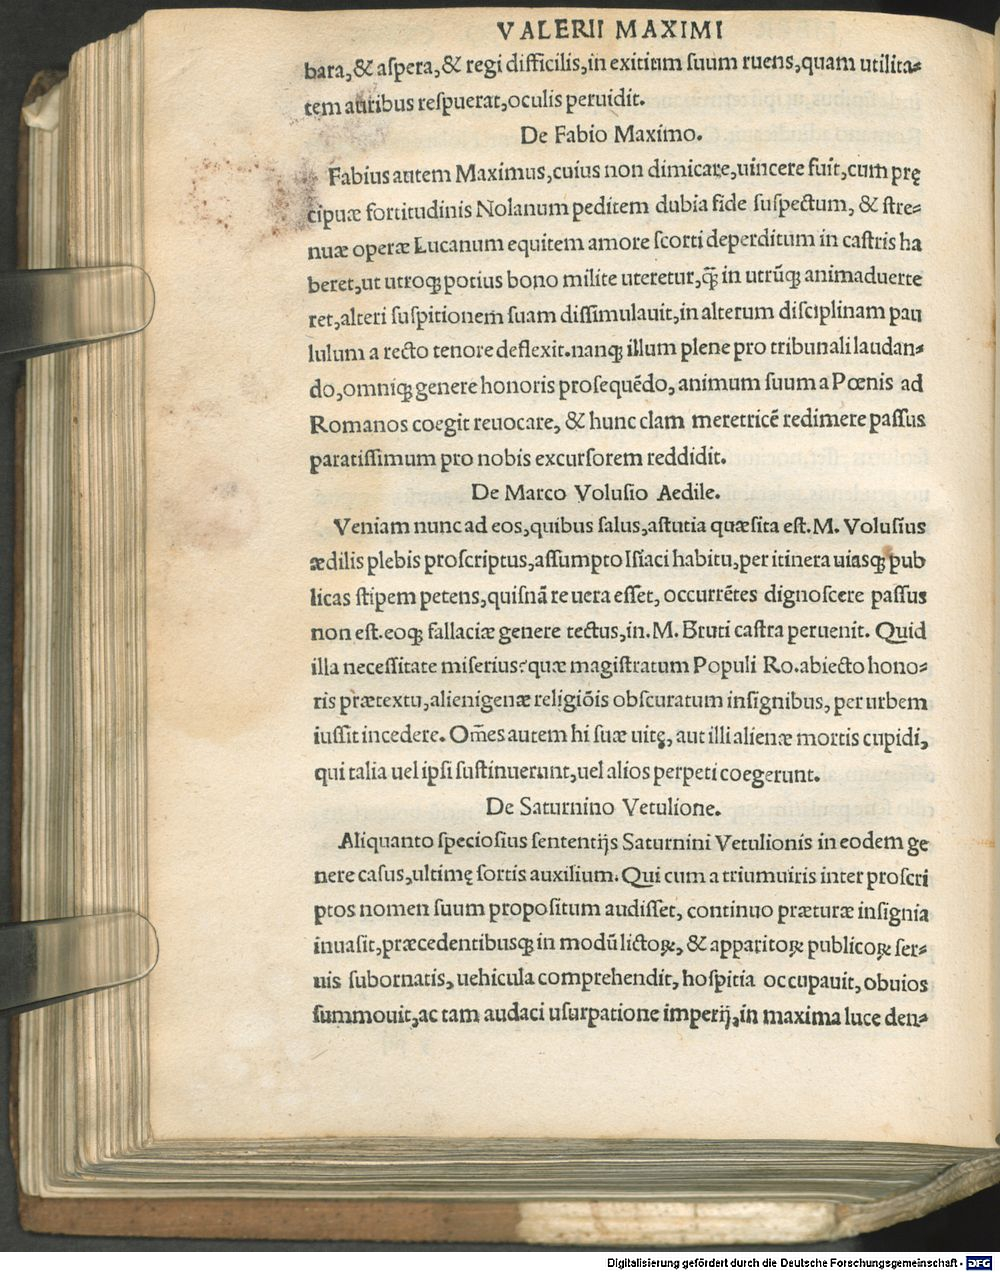 VALERII MAXIMI
bara,& aspera,& regi difficilis,in exitium suum ruens,quam utilita-
tem auribus respuerat,oculis peruidit.
De Fabio Maximo.
Fabius autem Maximus,cuius non dimicare,uincere fuit,cum prę
cipuæ fortitudinis Nolanum peditem dubia fide suspectum, & stre-
nuæ operæ Lucanum equitem amore scorti deperditum in castris ha
beret,ut utroqꝫ potius bono milite uteretur,q̃ in utrũqꝫ animaduerte
ret,alteri suspitionem suam dissimulauit,in alterum disciplinam pau
lulum a recto tenore deflexit.nanqꝫ illum plene pro tribunali laudan-
do,omniqꝫ genere honoris prosequẽdo, animum suum a Pœnis ad
Romanos coegit reuocare, & hunc clam meretricẽ redimere passus
paratissimum pro nobis excursorem reddidit.
De Marco Volusio Aedile.
Veniam nunc ad eos,quibus salus,astutia quæsita est.M. Volusius
ædilis plebis proscriptus,assumpto Isiaci habitu,per itinera uiasqꝫ pub
licas stipem petens,quisnã re uera esset, occurrẽtes dignoscere passus
non est.eoqꝫ fallaciæ genere tectus,in.M. Bruti castra peruenit. Quid
illa necessitate miserius?quæ magistratum Populi Ro.abiecto hono-
ris prætextu,alienigenæ religiõis obscuratum insignibus, per urbem
iussit incedere. Om̃es autem hi suæ uitę, aut illi alienæ mortis cupidi,
qui talia uel ipsi sustinuerunt,uel alios perpeti coegerunt.
De Saturnino Vetulione.
Aliquanto speciosius sententijs Saturnini Vetulionis in eodem ge
nere casus,ultimę sortis auxilium. Qui cum a triumuiris inter proscri
ptos nomen suum propositum audisset, continuo præturæ insignia
inuasit,præcedentibusqꝫ in modũ lictoꝝ, & apparitoꝝ publicoꝝ ser-
uis subornatis, uehicula comprehendit, hospitia occupauit, obuios
summouit,ac tam audaci usurpatione imperij,in maxima luce den-
Digitalisierung gefördert durch die Deutsche Forschungsgemeinschaft - DFG